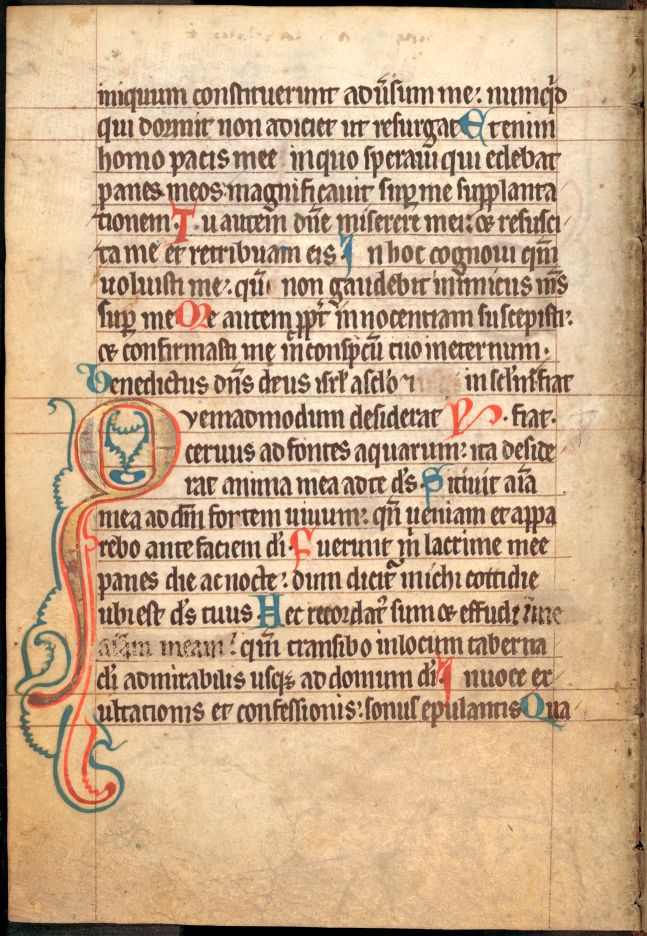 iniquum constituerunt aduersum me: numqd
qui dormit non adiciet ut resurgat Etenim
homo pacis mee in quo speraui qui edebat
panes meos magnificauit sup me supplanta
tionem. Tu autem dne miserere mei: & resusci
ta me et retribuam eis. In hoc cognoui qm
uoluisti me: qm non gaudebit inimicus ms
sup me Me autem ppt innocentiam suscepisti:
& confirmasti me in conspectu tuo in eternum.
Benedictus dns deus isrl a sclo in sclm fiat
Quemadmodum desiderat Ps. fiat.
ceruus ad fontes aquarum: ita deside
rat anima mea ad te ds. Sitiuit aia
mea ad dm fortem uiuum: qn ueniam et appa
rebo ante faciem di. Fuerunt m lacrime mee
panes die ac nocte: dum dicit michi cottidie
ubi est ds tuus Hec recordat sum & effudi in me
aiam meam: qm transibo in locum taberna
cli admirabilis usq; ad domum di. In uoce ex
ultationis et confessionis: sonus epulantis Qua